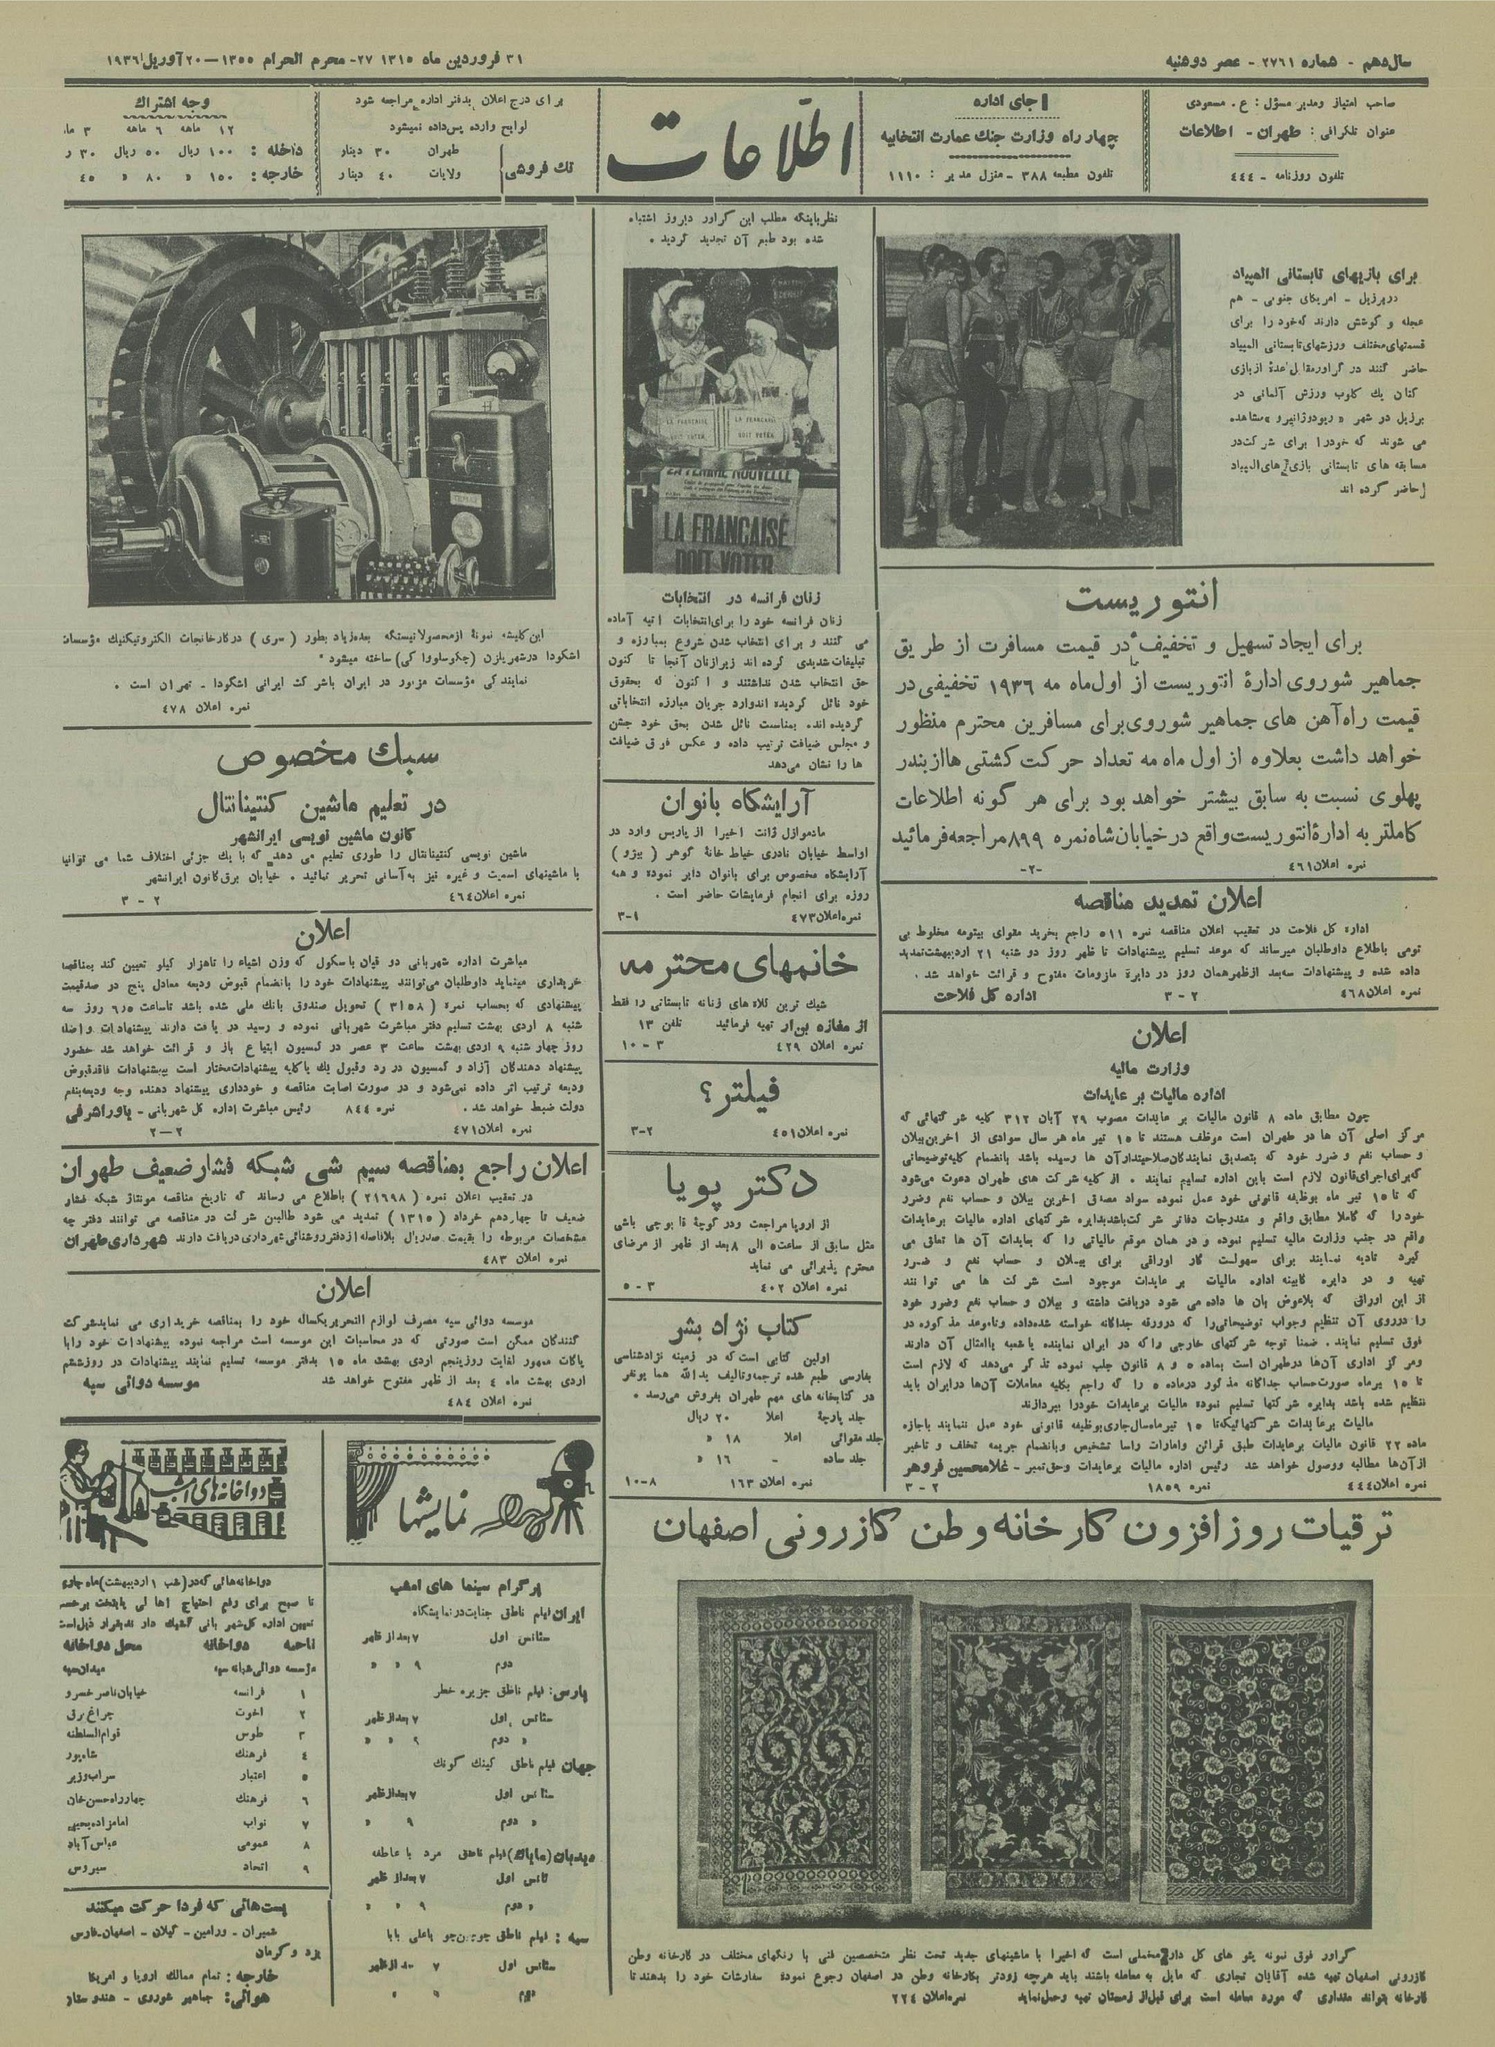 سال دهم - شماره ۲۷۶۱ - عصر دوشنبه
۳۱ فروردین ماه ۱۳۱۵ ۲۷- محرم الحرام ۱۳۵۵-۲۰ آوریل ۱۹۳۶
صاحب امتیاز ومدیر مسؤل: ع. مسعودی
عنوان تلگرافی: طهران- اطلاعات
تلفون روزنامه - ۴۴۴
جای اداره
چهار راه وزارت جنك عمارت انتخابیه
تلفون مطبعه ۳۸۸ - منزل مدیر: ۱۱۱۰
اطلاعات
برای درج اعلان بدفتر اداره مراجعه شود
لوایح وارده پس داده نمیشود
تك فروشی
طهران ۳۰ دینار
ولایات ۴۰ دینار
وجه اشتراك
۱۲ ماهه ۶ ماهه ۳ ما
داخله: ۱۰۰ ریال ۵۰ ریال ۳۰ ر
خارجه: ۱۵۰ » ۸۰ » ۴۵
برای بازیهای تابستانی المپیاد
دربرزیل - امریکای جنوبی - هم
عجله و کوشش دارند که خود را برای
قسمتهای مختلف ورزشهای تابستانی المپیاد
حاضر کنند در گراور مقابل عدۀ از بازی
کنان یك کلوب ورزش آلمانی در
برزیل در شهر « ریودوژانیرو » مشاهده
می شوند که خودرا برای شرکت در
مسابقه های تابستانی بازی های المپیاد
حاضر کرده اند
انتوریست
برای ایجاد تسهیل و تخفیف در قیمت مسافرت از طریق
جماهیر شوروی ادارۀ انتوریست از اول ماه مه ۱۹۳۶ تخفیفی در
قیمت راه آهن های جماهیر شوروی برای مسافرین محترم منظور
خواهد داشت بعلاوه از اول ماه مه تعداد حرکت کشتی ها از بندر
پهلوی نسبت به سابق بیشتر خواهد بود برای هر گونه اطلاعات
کاملتر به ادارۀ انتوریست واقع در خیابان شاه نمره ۸۹۹ مراجعه فرمائید
نمره اعلان ۴۶۱ -۲-
اعلان تمدید مناقصه
اداره کل فلاحت در تعقیب اعلان مناقصه نمره ۵۱۱ راجع بخرید مقوای بیتومه مخلوط بی
تومی باطلاع داوطلبان میرساند که موعد تسلیم پیشنهادات تا ظهر روز دو شنبه ۲۱ اردیبهشت تمدید
داده شده و پیشنهادات سه بعد از ظهر همان روز در دایرۀ ملزومات مفتوح و قرائت خواهد شد.
نمره اعلان ۴۶۸ ۲ - ۳ اداره کل فلاحت
اعلان
وزارت مالیه
اداره مالیات بر عایدات
چون مطابق ماده ۸ قانون مالیات بر عایدات مصوب ۲۹ آبان ۳۱۲ کلیه شرکتهائی که
مرکز اصلی آن ها در طهران است موظف هستند تا ۱۵ تیر ماه هر سال سوادی از اخرین بیلان
و حساب نفع و ضرر خود که بتصدیق نمایندگان صلاحیتدار آن ها رسیده باشد بانضمام کلیه توضیحاتی
که برای اجرای قانون لازم است باین اداره تسلیم نمایند. از کلیه شرکت های طهران دعوت می شود
که تا ۱۵ تیر ماه بوظیفه قانونی خود عمل نموده سواد مصدق اخرین بیلان و حساب نفع وضرر
خود را که کاملا مطابق واقع و مندرجات دفاتر شرکت باشد بدایره شرکتهای اداره مالیات بر عایدات
واقع در جنب وزارت مالیه تسلیم نموده و در همان موقع مالیاتی را که بعایدات آن ها تعلق می
گیرد تادیه نمایند برای سهولت کار اوراقی برای بیلان و حساب نفع و ضرر
تهیه و در دایره کابینه اداره مالیات بر عایدات موجود است شرکت ها می توانند
از این اوراق که بلاعوض بان ها داده می شود دریافت داشته و بیلان و حساب نفع وضرر خود
را درروی آن تنظیم وجواب توضیحاتی را که درورقه جداگانه خواسته شده داده وتا موعد مذکوره در
فوق تسلیم نمایند. ضمنا توجه شرکتهای خارجی را که در ایران نماینده یا شعبه یا امثال آن دارند
ومرکز اداری آن ها درطهران است بماده ۵ و ۸ قانون جلب نموده تذکر می دهد که لازم است
تا ۱۵ تیرماه صورت حساب جداگانه مذکور درماده ۵ را که راجع بکلیه معاملات آن ها درایران باید
تنظیم شده باشد بدایره شرکتها تسلیم نموده مالیات برعایدات خودرا بپردازند
مالیات برعایدات شرکتهائیکه تا ۱۵ تیرماه سال جاری بوظیفه قانونی خود عمل ننمایند باجازه
ماده ۲۲ قانون مالیات برعایدات طبق قرائن وامارات راسا تشخیص وبانضمام جریمه تخلف و تاخیر
از آن ها مطالبه ووصول خواهد شد رئیس اداره مالیات برعایدات وحق تمبر - غلامحسین فروهر
نمره اعلان ۴۴۴ نمره ۱۸۵۹ ۲ - ۳
نظر باینکه مطلب این گراور دیروز اشتباه
شده بود طبع آن تجدید گردید.
LA FRANCAISE DOIT VOTER
LA FRANCAISE DOIT VOTER
LA FEMME NOUVELLE
LA FRANCAISE
DOIT VOTER
زنان فرانسه در انتخابات
زنان فرانسه خود را برای انتخابات اتیه آماده
می کنند و برای انتخاب شدن شروع بمبارزه و
تبلیغات شدیدی کرده اند زیرا زنان آنجا تا کنون
حق انتخاب شدن نداشتند و اکنون که بحقوق
خود نائل گردیده اند وارد جریان مبارزه انتخاباتی
گردیده اند. بمناسبت نائل شدن بحق خود جشن
و مجلس ضیافت ترتیب داده و عکس فوق ضیافت
ها را نشان می دهد
آرایشگاه بانوان
مادموازل ژانت اخیرا از پاریس وارد در
اواسط خیابان نادری خیاط خانۀ گوهر ( بیژو )
آرایشگاه مخصوص برای بانوان دایر نموده و همه
روزه برای انجام فرمایشات حاضر است.
نمره اعلان ۴۷۳ ۱-۳
خانمهای محترمه
شیك ترین کلاه های زنانه تابستانی را فقط
از مغازه بن ار تهیه فرمائید تلفن ۱۳
نمره اعلان ۴۲۹ ۳ - ۱۰
فیلتر؟
نمره اعلان ۴۵۱ ۲-۳
دکتر پویا
از اروپا مراجعت ودر کوچۀ قابوجی باشی
مثل سابق از ساعت ۵ الی ۸ بعد از ظهر از مرضای
محترم پذیرائی می نماید
نمره اعلان ۴۰۲ ۳ - ۵
کتاب نژاد بشر
اولین کتابی است که در زمینه نژادشناسی
بفارسی طبع شده ترجمه وتالیف یدالله همایونفر
در کتابخانه های مهم طهران بفروش می رسد.
جلد پارچۀ اعلا ۲۰ ریال
جلد مقوائی اعلا ۱۸ »
جلد ساده - ۱۶ »
نمره اعلان ۱۶۳ ۸-۱۰
این کلیشه نمونۀ از محصولاتیستکه بعده زیاد بطور ( سری ) در کارخانجات الکتروتکنیك مؤسسات
اشکودا در شهر پلزن (چکوسلوواکی) ساخته میشود
نمایندگی مؤسسات مزبور در ایران با شرکت ایرانی اشکودا - تهران است.
نمره اعلان ۴۷۸
سبك مخصوص
در تعلیم ماشین کنتیناتال
کانون ماشین نویسی ایرانشهر
ماشین نویسی کنتیناتال را طوری تعلیم می دهد که با یك جزئی اختلاف شما می توانید
با ماشینهای اسمیت و غیره نیز به آسانی تحریر نمائید. خیابان برق کانون ایرانشهر
نمره اعلان ۴۶۴ ۲ - ۳
اعلان
مباشرت اداره شهربانی دو قپان باسکول که وزن اشیاء را تاهزار کیلو تعیین کند بمناقصه
خریداری مینماید داوطلبان می توانند پیشنهادات خود را بانضمام قبوض ودیعه معادل پنج در صد قیمت
پیشنهادی که بحساب نمره ( ۳۱۵۸ ) تحویل صندوق بانك ملی شده باشد تا ساعت ۶٫۵ روز سه
شنبه ۸ اردی بهشت تسلیم دفتر مباشرت شهربانی نموده و رسید در یافت دارند پیشنهادات واصله
روز چهار شنبه ۹ اردی بهشت ساعت ۳ عصر در کمسیون ابتیاع باز و قرائت خواهد شد حضور
پیشنهاد دهندگان آزاد و کمسیون در رد وقبول یك یا کلیه پیشنهادات مختار است پیشنهادات فاقد قبوض
ودیعه ترتیب اثر داده نمی شود و در صورت اصابت مناقصه و خودداری پیشنهاد دهنده وجه ودیعه بنفع
دولت ضبط خواهد شد. نمره ۸۴۴ رئیس مباشرت اداره کل شهربانی - یاور اشرفی
نمره اعلان ۴۷۱ ۲-۲
اعلان راجع بمناقصه سیم شی شبکه فشار ضعیف طهران
در تعقیب اعلان نمره ( ۲۱۶۹۸ ) باطلاع می رساند که تاریخ مناقصه مونتاژ شبکه فشار
ضعیف تا چهاردهم خرداد ( ۱۳۱۵ ) تمدید می شود طالبین شرکت در مناقصه می توانند دفتر چه
مشخصات مربوطه را بقیمت صد ریال بلافاصله از دفتر روشنائی شهرداری دریافت دارند شهرداری طهران
نمره اعلان ۴۸۳
اعلان
موسسه دوائی سپه مصرف لوازم التحریر یکساله خود را بمناقصه خریداری می نماید شرکت
کنندگان ممکن است صورتی که در محاسبات این موسسه است مراجعه نموده پیشنهادات خود را با
پاکات ممهور لغایت روز پنجم اردی بهشت ماه ۱۵ بدفتر موسسه تسلیم نمایند پیشنهادات در روز ششم
اردی بهشت ماه ۴ بعد از ظهر مفتوح خواهد شد موسسه دوائی سپه
نمره اعلان ۴۸۴
نمایشها
پرگرام سینما های امشب
ایران فیلم ناطق جنایت در نمایشگاه
سئانس اول ۷ بعد از ظهر
دوم ۹ » »
پارس: فیلم ناطق جزیره خطر
سئانس اول ۷ بعد از ظهر
» دوم ۹ » »
جهان فیلم ناطق کینك کونك
سئانس اول ۷ بعد از ظهر
» دوم ۹ »
دیدبان (مایاك) فیلم ناطق مرد با عاطفه
سئانس اول ۷ بعد از ظهر
» دوم ۹ » »
سپه: فیلم ناطق چوچین چو یا علی بابا
سئانس اول ۷ بعد از ظهر
دوم ۹ »
دواخانه های امشب
دواخانه هائی که در (شب ۱ اردیبهشت) ماه جاری
تا صبح برای رفع احتیاج اهالی پایتخت بر حسب
تعیین اداره کل شهربانی کشیك دارند بقرار ذیل است
ناحیه دواخانه محل دواخانه
مؤسسه دوائی شبانه سپه میدان سپه
۱ فرانسه خیابان ناصر خسرو
۲ اخوت چراغ برق
۳ طوس قوام السلطنه
۴ فرهنك شاهپور
۵ اعتبار سراب وزیر
۶ فرهنك چهار راه حسن خان
۷ نواب امامزاده یحیی
۸ عمومی عباس آباد
۹ اتحاد سیروس
پست هائی که فردا حرکت میکنند
شمیران - ورامین - گیلان - اصفهان - فارس
یزد و کرمان
خارجه: تمام ممالك اروپا و امریکا
هوائی: جماهیر شوروی - هندوستان
ترقیات روز افزون کارخانه وطن کازرونی اصفهان
گراور فوق نمونه پتو های کل دار مخملی است که اخیرا با ماشینهای جدید تحت نظر متخصصین فنی با رنگهای مختلف در کارخانه وطن
کازرونی اصفهان تهیه شده آقایان تجاری که مایل به معامله باشند باید هرچه زودتر بکارخانه وطن در اصفهان رجوع نموده سفارشات خود را بدهند تا
کارخانه بتواند مقداری که مورد معامله است برای قبل از زمستان تهیه وحمل نماید نمره اعلان ۲۲۴